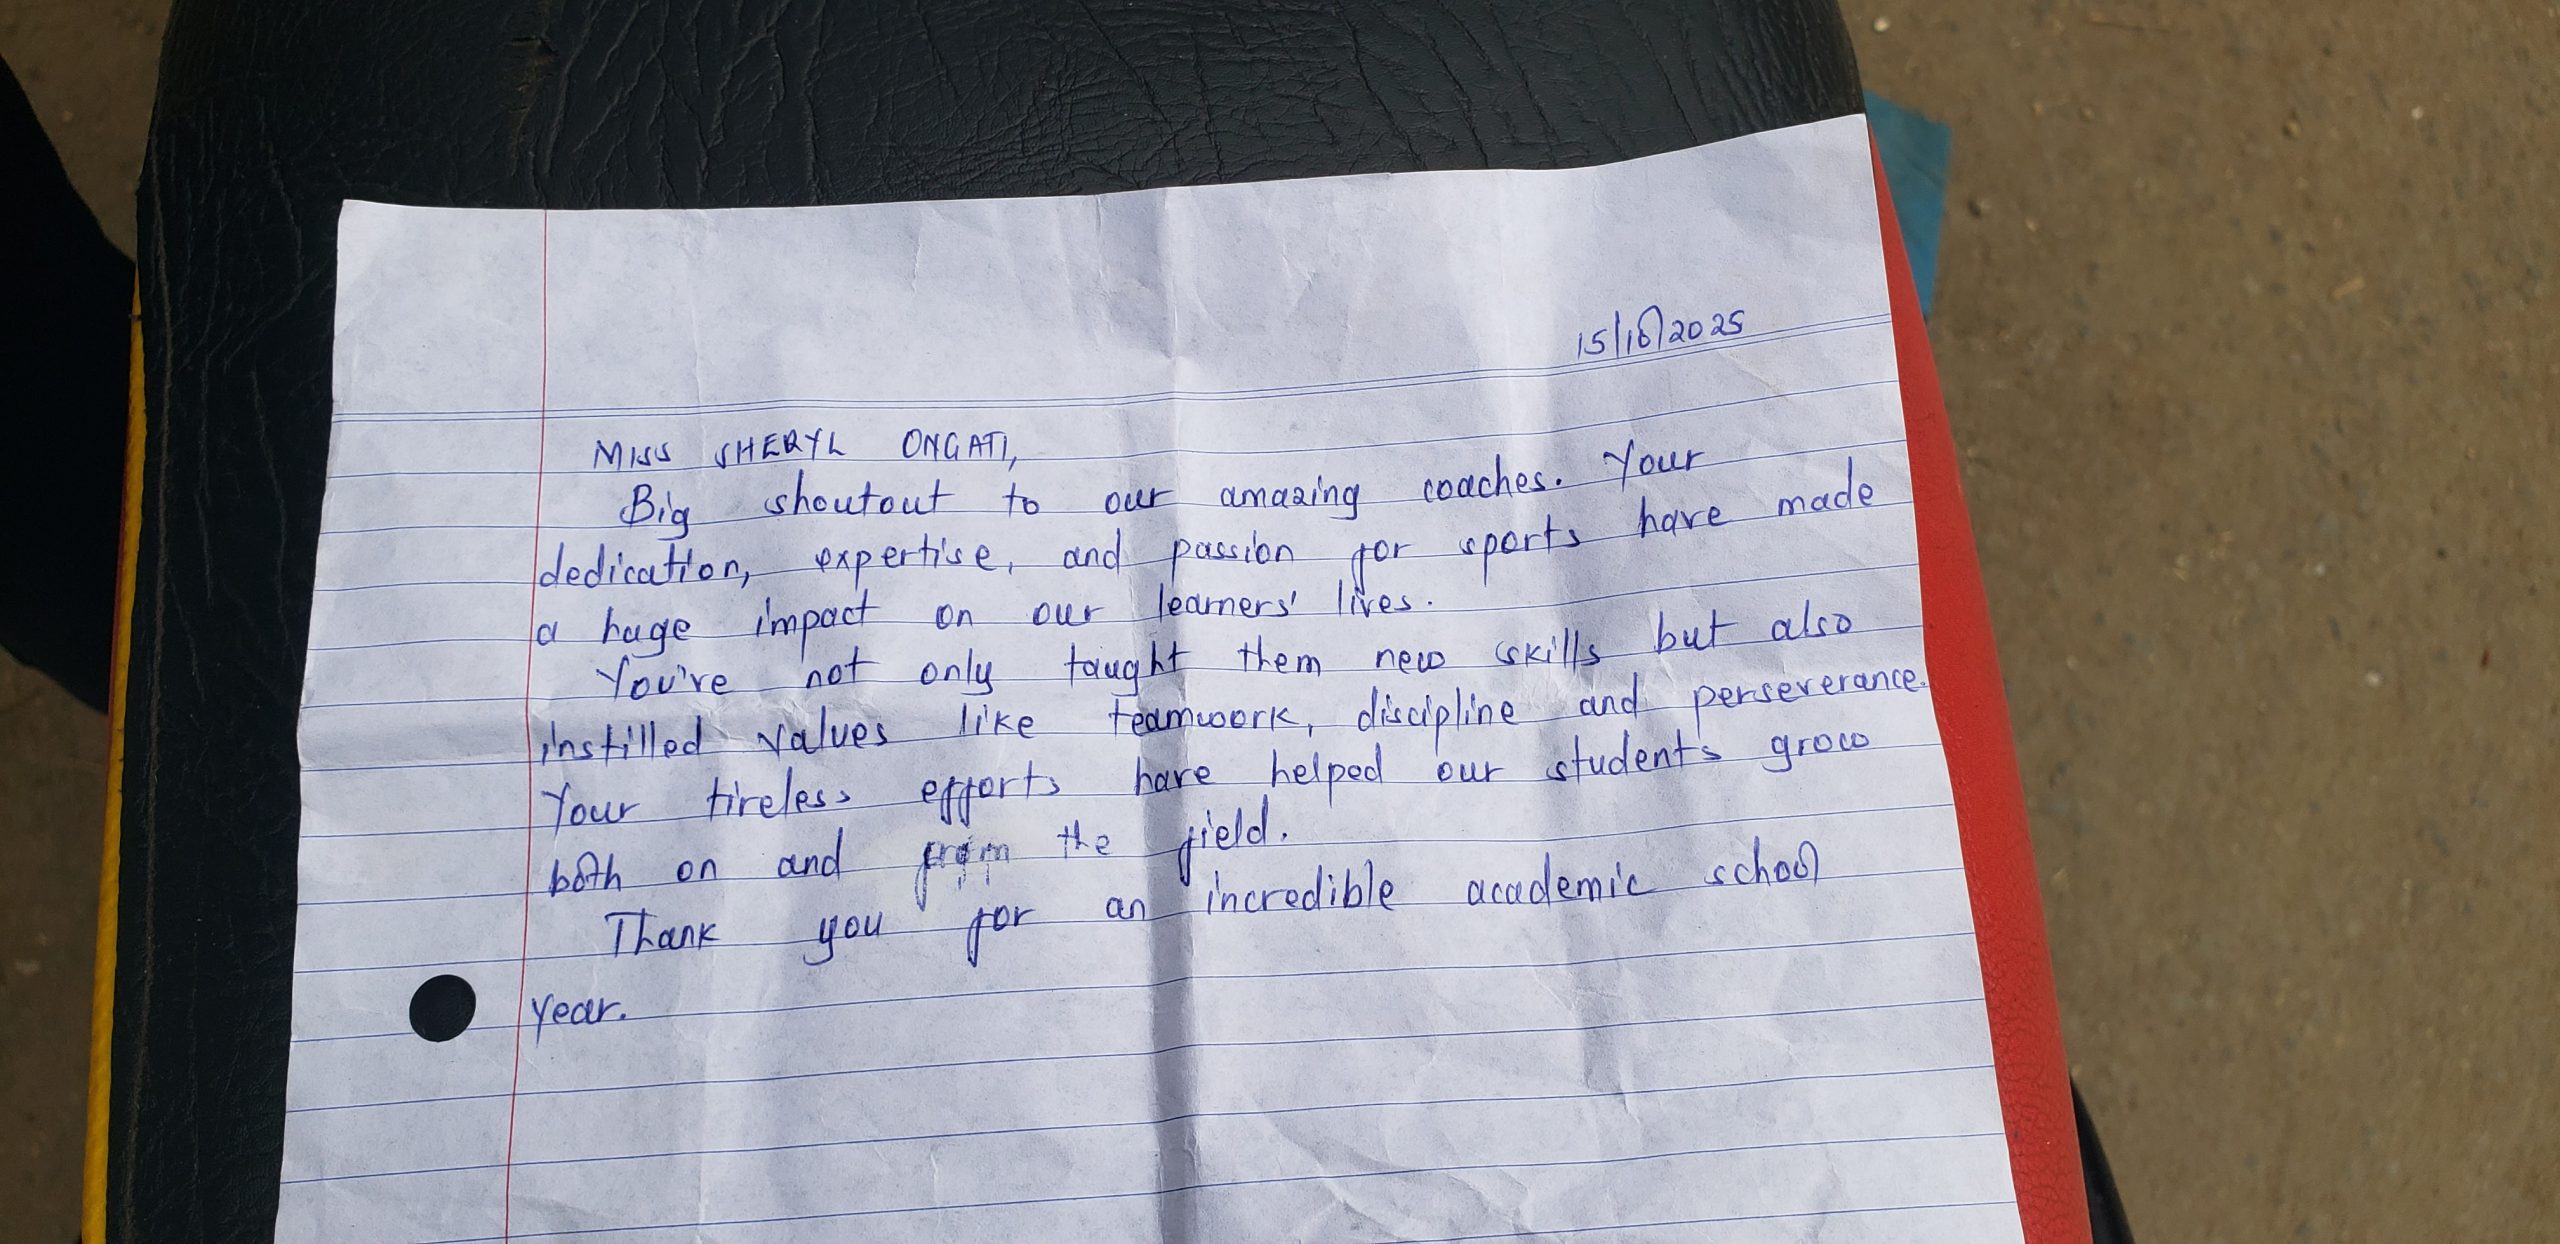 15/10/2025
MISS SHERYL ONGATI,
Big shoutout to our amazing coaches. Your
dedication, expertise, and passion for sports have made
a huge impact on our learners' lives.
You've not only taught them new skills but also
instilled values like teamwork, discipline and perseverance.
Your tireless efforts have helped our students grow
both on and from the field.
Thank you for an incredible academic school
year.